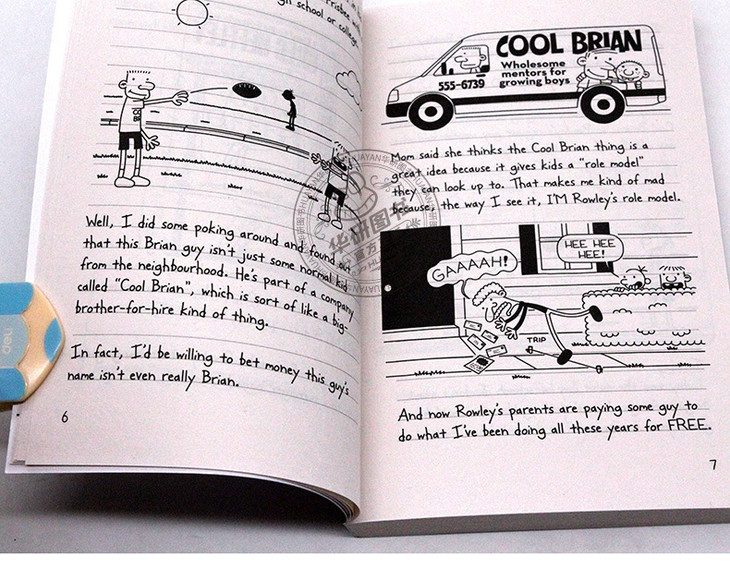 Frisbee with
high school or college
Well, I did some poking around and found out
that this Brian guy isn't just some normal kid
from the neighbourhood. He's part of a company
called "Cool Brian", which is sort of like a big-
brother-for-hire kind of thing.
In fact, I'd be willing to bet money this guy's
name isn't even really Brian.
6
COOL BRIAN
Wholesome
mentors for
growing boys
555-6739
Mom said she thinks the Cool Brian thing is a
great idea because it gives kids a "role model"
they can look up to. That makes me kind of mad
because, the way I see it, I'M Rowley's role model.
GAAAAH!
HEE HEE
HEE!
TRIP
And now Rowley's parents are paying some guy to
do what I've been doing all these years for FREE.
7
deli
HUAYAN
华研图书